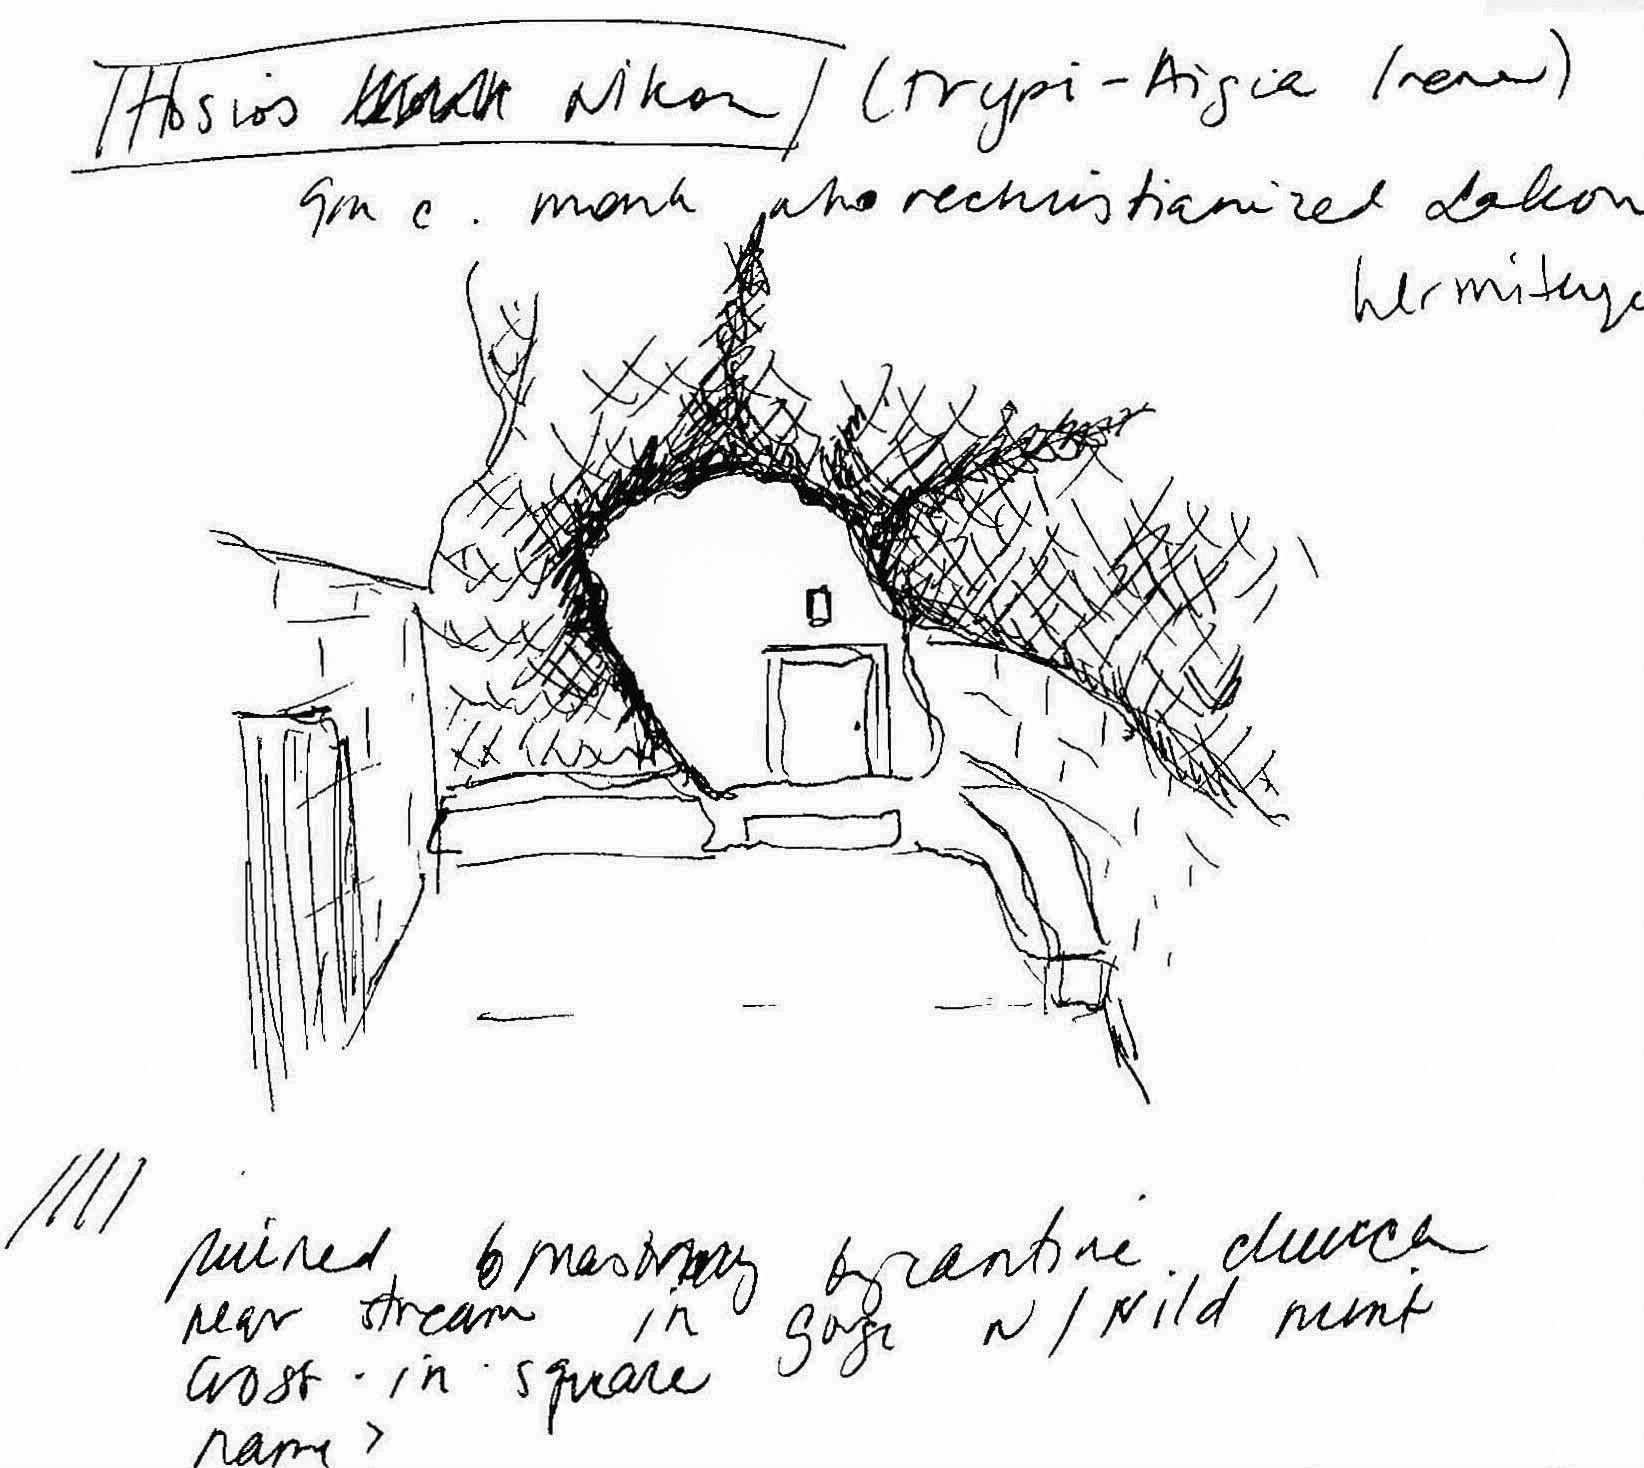 Hosios Nikon (trypi-Aigia Irene)
9th c. monk who rechristianized Lakon
hermitage
ruined masonry byzantine church
near stream in gorge w/ wild mint
cross-in-square
name?